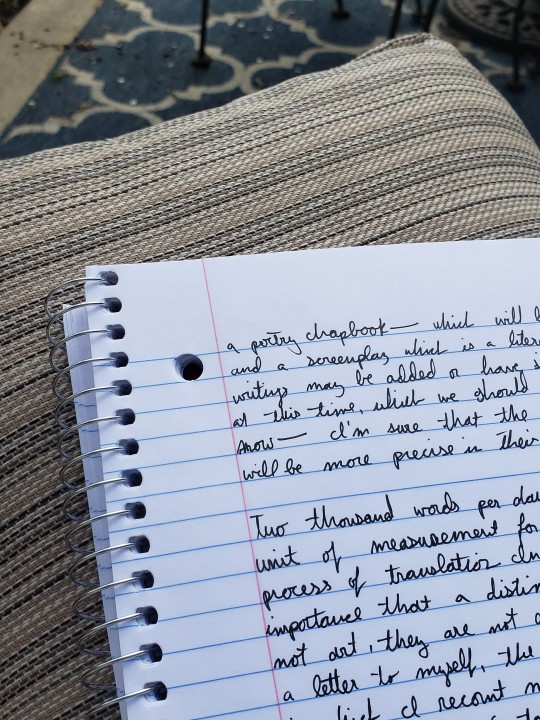 a poetry chapbook — which will b
and a screenplay which is a liter
writings may be added or have s
at this time, which we should
know — I'm sure that the
will be more precise in their
Two thousand words per day
unit of measurement for
process of translation
importance that a distin
not art, they are not
a letter to myself, the
which I recount m